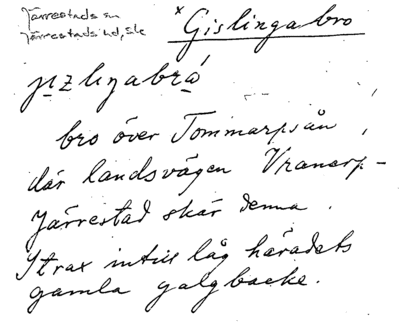 Järrestads sn
Järrestads hd, Sk
× Gislingabro
bro över Tommarpsån,
där landsvägen Vranarp-
Järrestad skär denna.
Strax intill låg häradets
gamla galgbacke.